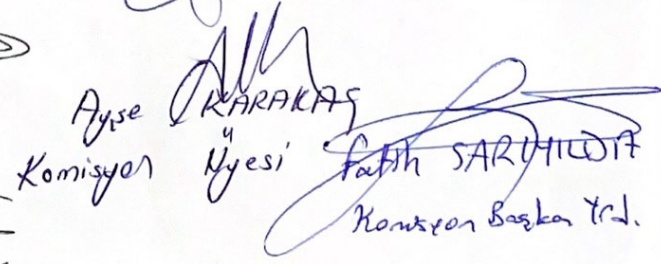 Ayşe KARAKAŞ
Komisyon Üyesi
Fatih SARIYILDIZ
Komisyon Başkan Yrd.